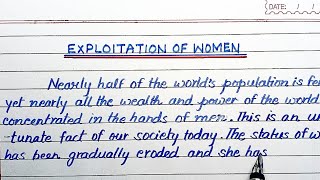 DATE: / /
EXPLOITATION OF WOMEN
Nearly half of the world's population is fe
yet nearly all the wealth and power of the world
concentrated in the hands of men. This is an un
tunate fact of our society today. The status of w
has been gradually eroded and she has